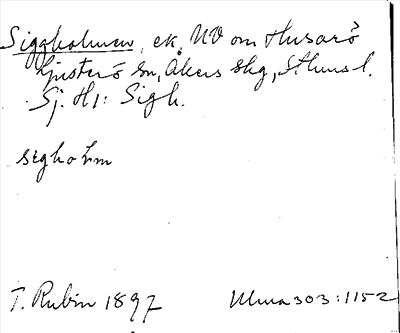 Siggholmen, ek. NV om Husarö
Ljusterö sn, Åkers skg, Sthms l.
Sj. H1: Sigh.
sigholm
T. Rubin 1897 Ulma 303:1152